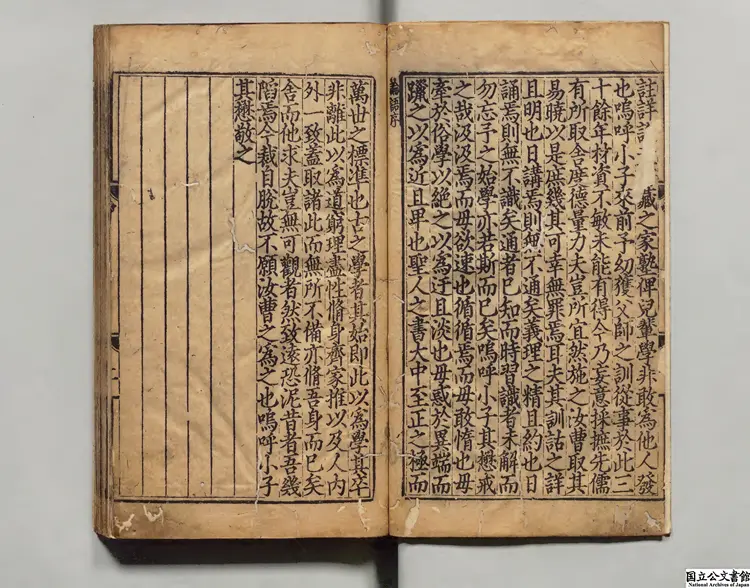 藏之家塾俾兒輩學非敢為他人發
也嗚呼小子來前予幼獲父師之訓從事於此三
十餘年材資不敏未能有得今乃妄意採摭先儒
有所取舍度德量力夫豈所宜然施之汝曹取其
易曉以是庶幾其可幸無罪焉耳夫其訓詁之詳
且明也日講焉則無不通矣義理之精且約也日
誦焉則無不識矣通者已知而時習識者未解而
勿忘予之始學亦若斯而已矣嗚呼小子其懋戒
之哉汲汲焉而毋欲速也循循焉而毋敢惰也毋
牽於俗學以絕之以為迂且淡也毋惑於異端而
躐之以為近且卑也聖人之書大中至正之極而
論語序
萬世之標準也古之學者其始即此以為學其卒
非離此以為道窮理盡性脩身齊家推以及人內
外一致蓋取諸此而無所不備亦脩吾身而已矣
舍而他求夫豈無可觀者然致遠恐泥昔者吾幾
陷焉今裁自脫故不願汝曹之為之也嗚呼小子
其懋敬之
国立公文書館
National Archives of Japan